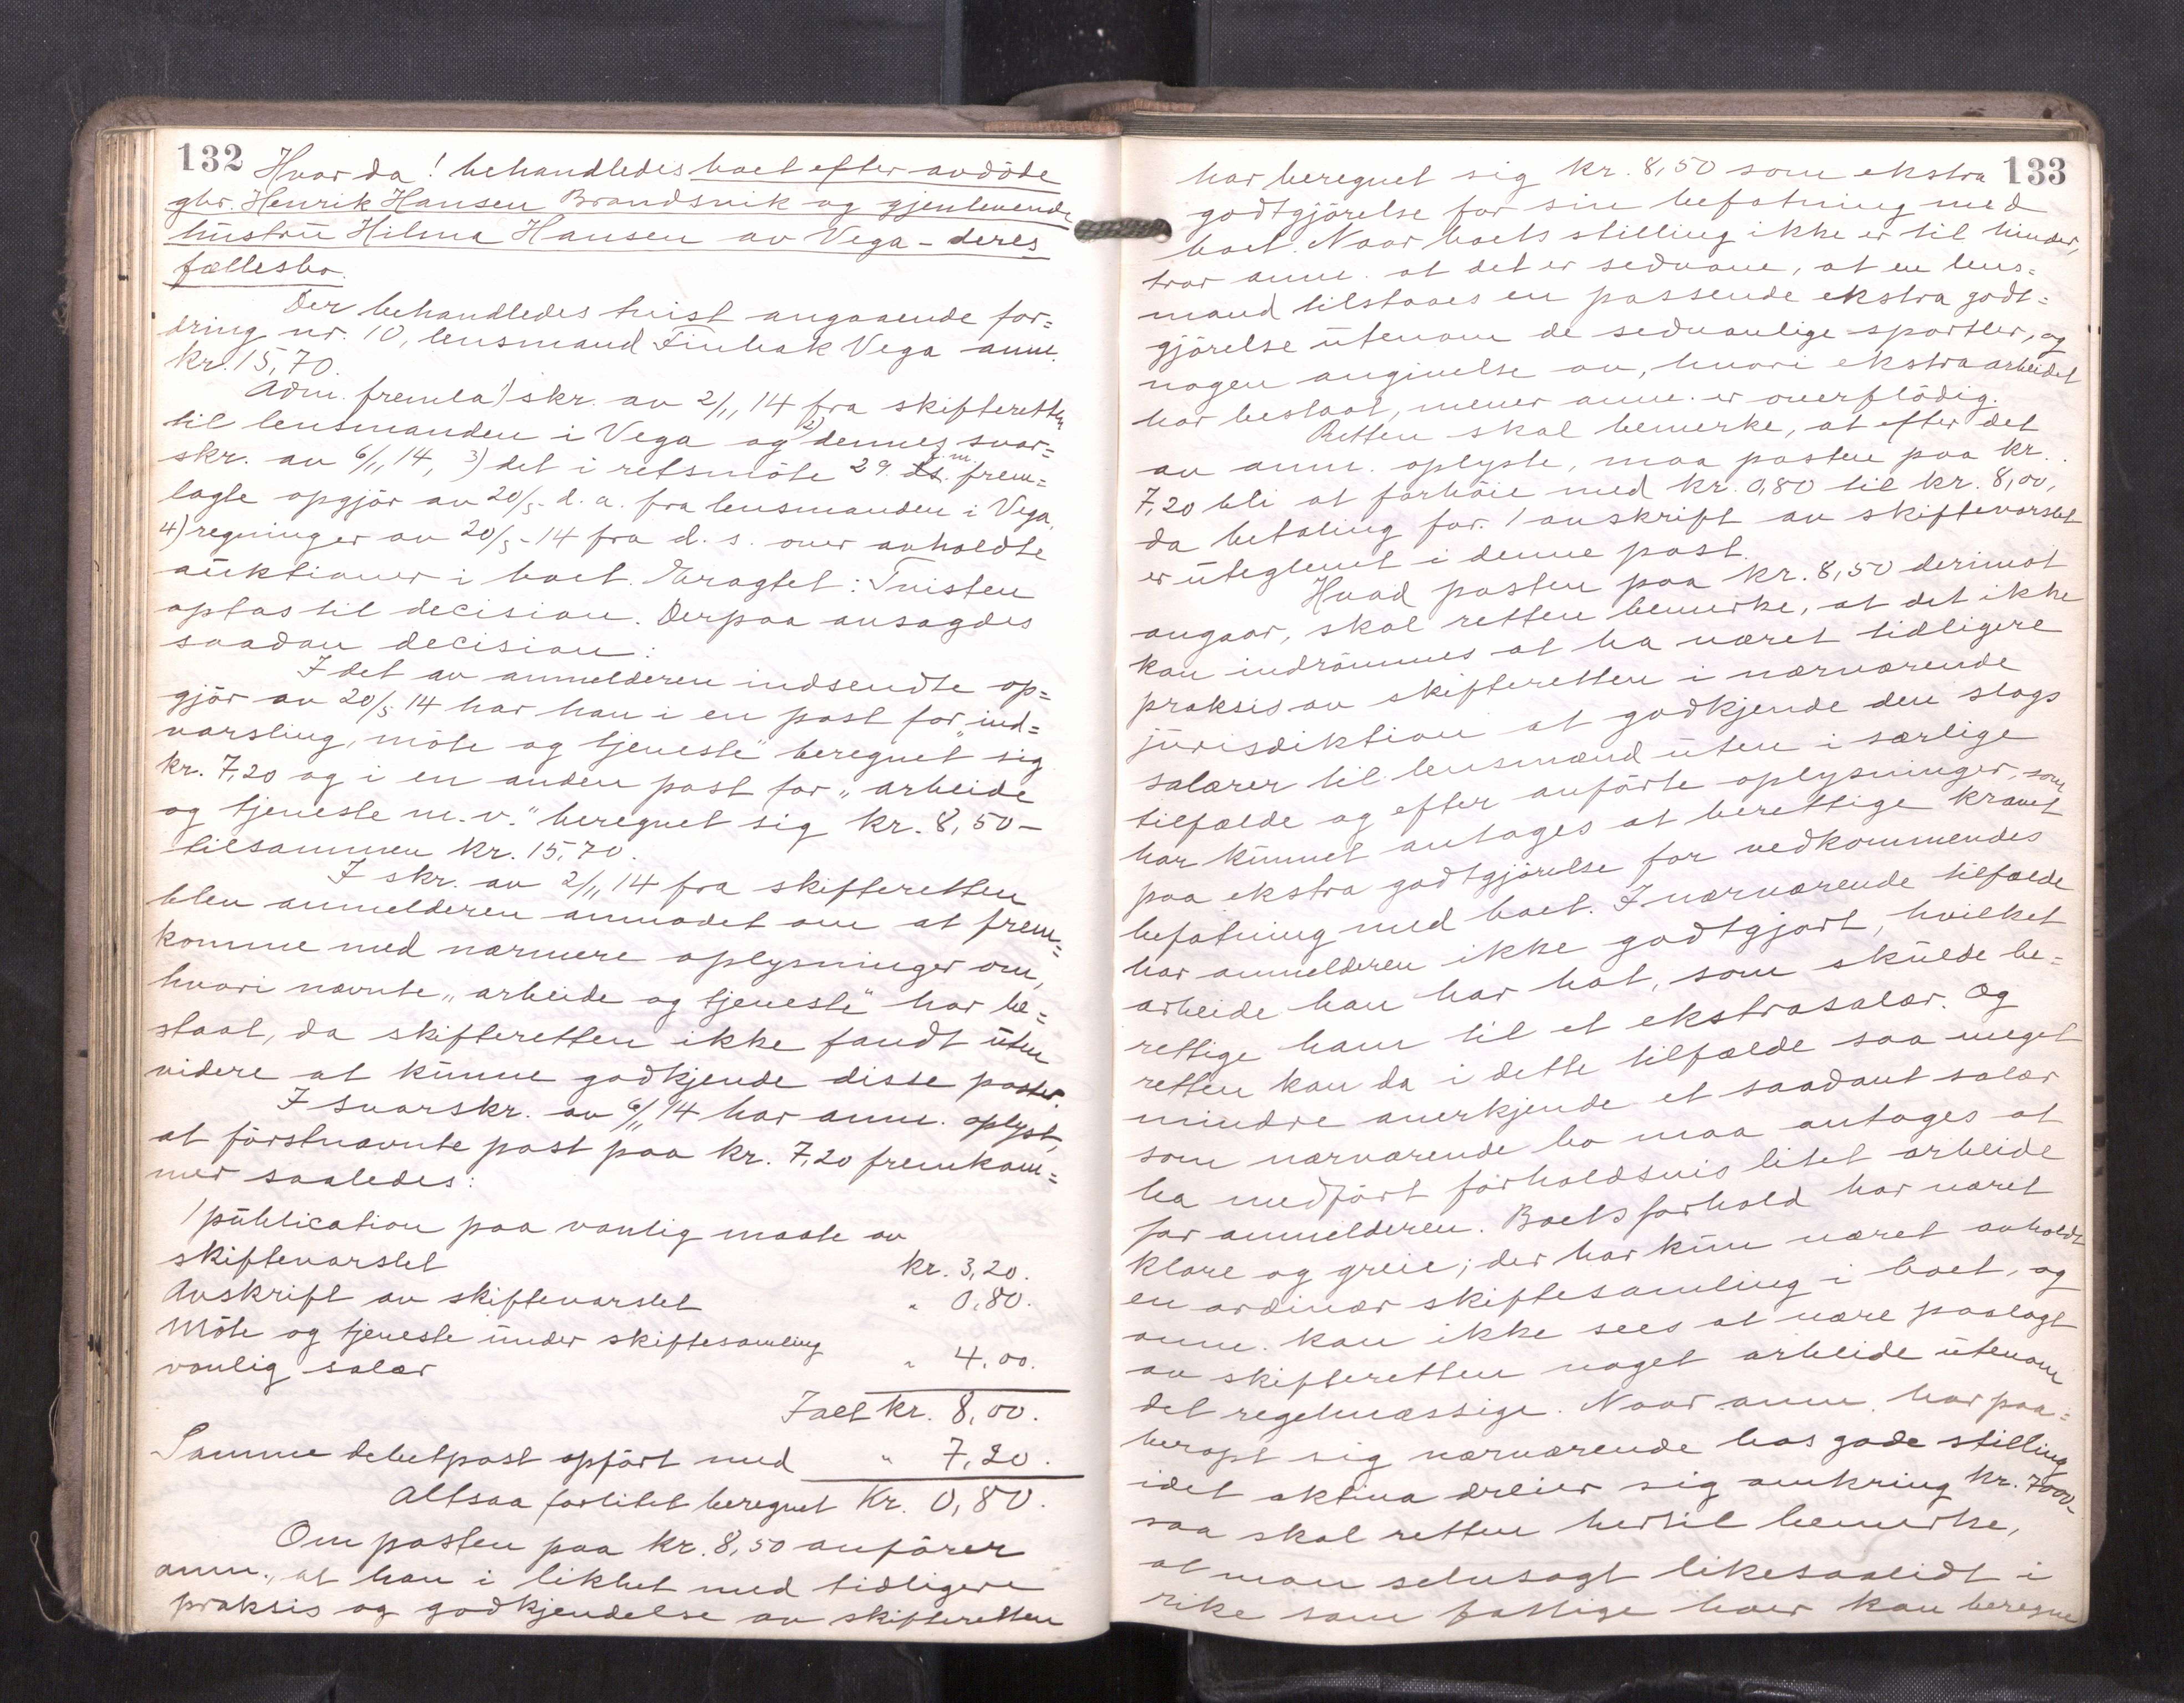 132 Hvor da! behandledes boet efter avdöde
gbr. Henrik Hansen Brandsvik og gjenlevende
hustru Hilma Hansen av Vega - deres
fællesbo.
Der behandledes tvist angaaende for=
dring nr. 10, lensmand Finbak Vega anm.
kr. 15,70.
Adm. fremla 1) skr. av 2/11 14 fra skifteretten
til lensmanden i Vega og 2) dennes svar=
skr. av 6/11 14, 3) det i retsmöte 29. f.m. frem=
lagte opgjör av 20/5 d. a. fra lensmanden i Vega,
4) regninger av 20/5 - 14 fra d. s. over avholdte
auktioner i boet. Eragtet: Tvisten
optas til decision. Derpaa avsagdes
saadan decision:
I det av anmelderen indsendte op=
gjör av 20/5 14 har han i en post for "ind=
varsling, möte og tjeneste" beregnet sig
kr. 7,20 og i en anden post for "arbeide
og tjeneste m.v." beregnet sig kr. 8,50 -
tilsammen kr. 15,70.
I skr. av 2/11 14 fra skifteretten
blev anmelderen anmodet om at frem=
komme med nærmere oplysninger om,
hvori nævnte "arbeide og tjeneste" har be=
staat, da skifteretten ikke fandt uten
videre at kunne godkjende disse poster.
I svarskr. av 6/11 14 har anm. oplyst,
at förstnævnte post paa kr. 7,20 fremkom=
mer saaledes:
1 publication paa vanlig maate av
skiftevarslet kr. 3,20.
Avskrift av skiftevarslet " 0,80.
Möte og tjeneste under skiftesamling
vanlig salær " 4,00.
Ialt kr. 8,00.
Samme debetpost opfört med " 7,20.
Altsaa forlitet beregnet Kr. 0,80.
Om posten paa kr. 8,50 anförer
anm., at han i likhet med tidligere
praksis og godkjendelse av skifteretten
133
har beregnet sig kr. 8,50 som ekstra
godtgjörelse for sin befatning med
boet. Naar boets stilling ikke er til hinder,
tror anm. at det er sedvane, at en lens=
mand tilstaaes en passende ekstra godt=
gjörelse utenom de sedvanlige sportler, og
nogen angivelse av, hvori ekstraarbeidet
har bestaat, mener anm. er overflödig.
Retten skal bemerke, at efter det
av anm. oplyste, maa posten paa kr.
7,20 bli at forhöie med kr. 0,80 til kr. 8,00,
da betaling for 1 avskrift av skiftevarslet
er uteglemt i denne post.
Hvad posten paa kr. 8,50 derimot
angaar, skal retten bemerke, at det ikke
kan indrömmes at ha været tidligere
praksis av skifteretten i nærværende
jurisdiktion at godkjende den slags
salærer til lensmænd uten i særlige
tilfælde og efter anförte oplysninger, som
har kunnet antages at berettige kravet
paa ekstra godtgjörelse for vedkommendes
befatning med boet. I nærværende tilfælde
har anmelderen ikke godtgjort, hvilket
arbeide han har hat, som skulde be=
rettige ham til et ekstrasalær. Og
retten kan da i dette tilfælde saa meget
mindre anerkjende et saadant salær
som nærværende bo maa antages at
ha medfört forholdsvis litet arbeide
for anmelderen. Boets forhold har været
klare og greie; der har kun været avholdt
en ordinær skiftesamling i boet, og
anm. kan ikke sees at være paalagt
av skifteretten noget arbeide utenom
det regelmæssige. Naar anm. har paa=
beropt sig nærværende bos gode stilling
idet aktiva dreier sig omkring kr. 7000-
saa skal retten hertil bemerke,
at man selvsagt likesaalidt i
rike som fattige boer kan beregne